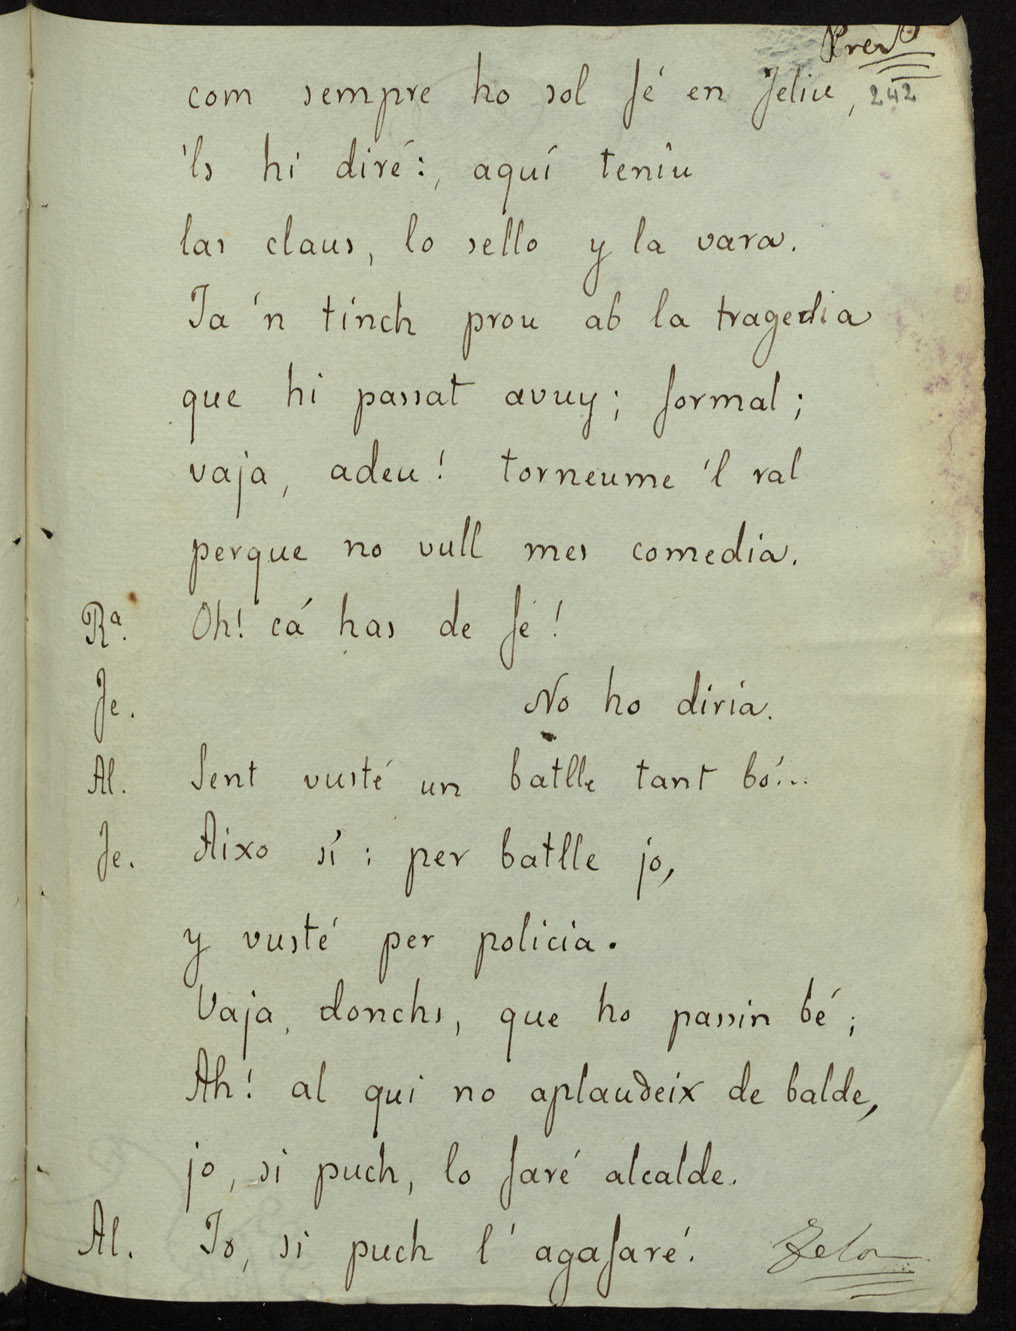 Prev
242
com sempre ho sol fé en Feliu,
'ls hi diré:, aquí teniu
las claus, lo sello y la vara.
Ja 'n tinch prou ab la tragedia
que hi passat avuy; formal;
vaja, adeu! torneume 'l ral
perque no vull mes comedia.
Rª. Oh! cá has de fé!
Je. No ho diria.
Al. Sent vusté un batlle tant bó!...
Je. Aixo sí: per batlle jo,
y vusté per policia.
Vaja, donchs, que ho passin bé;
Ah! al qui no aplaudeix de balde,
jo, si puch, lo faré alcalde.
Al. Jo, si puch l' agafaré.
Telon